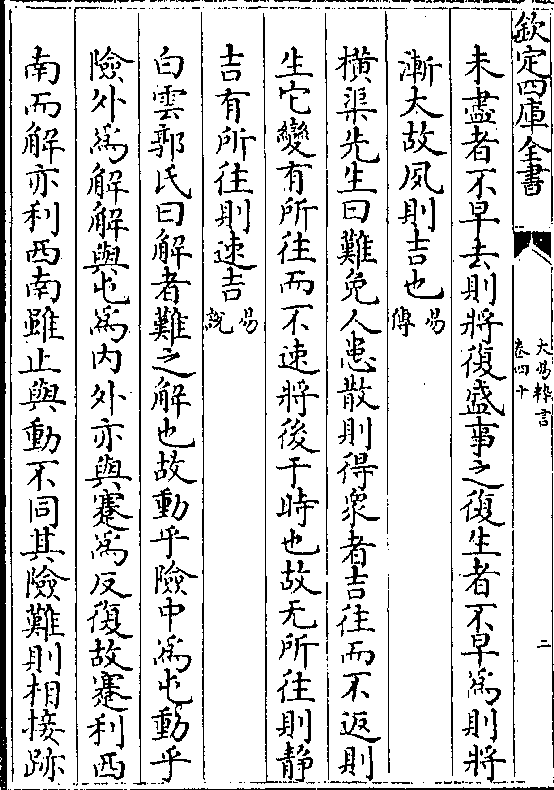 欽定四庫全書
大易粹言
卷四十
二
未盡者不早去則將復盛事之復生者不早為則將
漸大故夙則吉也易傳
橫渠先生曰難免人患散則得衆者吉往而不返則
生它變有所往而不速將後于時也故无所往則静
吉有所往則速吉易說
白雲郭氏曰解者難之解也故動乎險中為屯動乎
險外為解解與屯為内外亦與蹇為反復故蹇利西
南而解亦利西南雖止與動不同其險難則相接跡